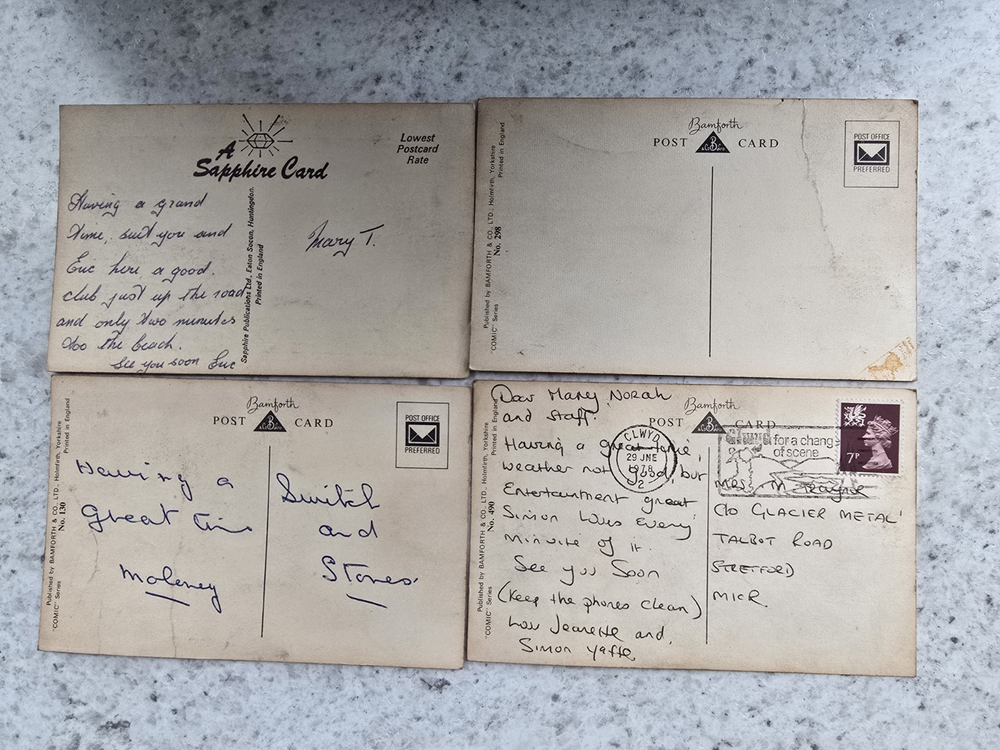 A
Sapphire Card
Lowest
Postcard
Rate
Having a grand
time, suit you and
Eric here a good.
club just up the road
and only two minutes
too the beach.
See you soon Eric
Sapphire Publications Ltd., Eaton Socon, Huntingdon.
Printed in England
Mary T.
Published by BAMFORTH & CO., LTD., Holmfirth, Yorkshire
"COMIC" Series No. 298 Printed in England
Bamforth
POST CARD
POST OFFICE
PREFERRED
Published by BAMFORTH & CO., LTD., Holmfirth, Yorkshire
"COMIC" Series No. 130 Printed in England
Bamforth
POST CARD
POST OFFICE
PREFERRED
Having a
great time
Moloney
Switch
and
Stores.
Published by BAMFORTH & CO., LTD., Holmfirth, Yorkshire
"COMIC" Series No. 490 Printed in England
Bamforth
POST CARD
Dear Mary, Norah
and Staff.
Having a great time,
weather not good, but
Entertaument great
Simon loves every
minuite of it.
See you Soon
(Keep the phones clean)
Love Jeanette and
Simon Yaffe
CLWYD
29 JNE
1978
2
for a chang
of scene
7P
Mrs. M
C/O GLACIER METAL
TALBOT ROAD
STRETFORD
M/CR